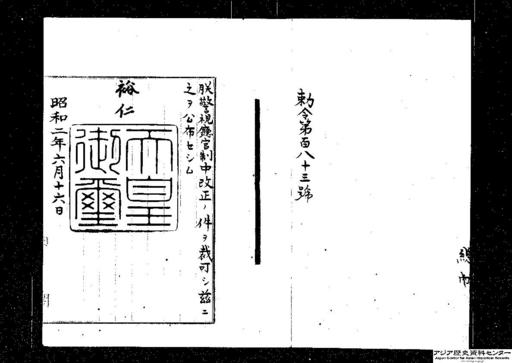 勅令第百八十三號
朕警視廳官制中改正ノ件ヲ裁可シ茲ニ
之ヲ公布セシム
裕仁
天皇御璽
昭和二年六月十六日
アジア歴史資料センター
Japan Center for Asian Historical Records